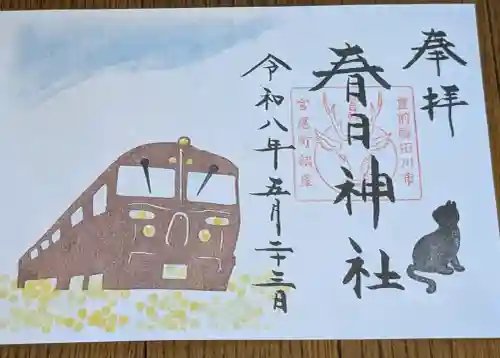 奉拝
春日神社
令和八年五月二十三日
豊前國田川市
宮尾町鎮座